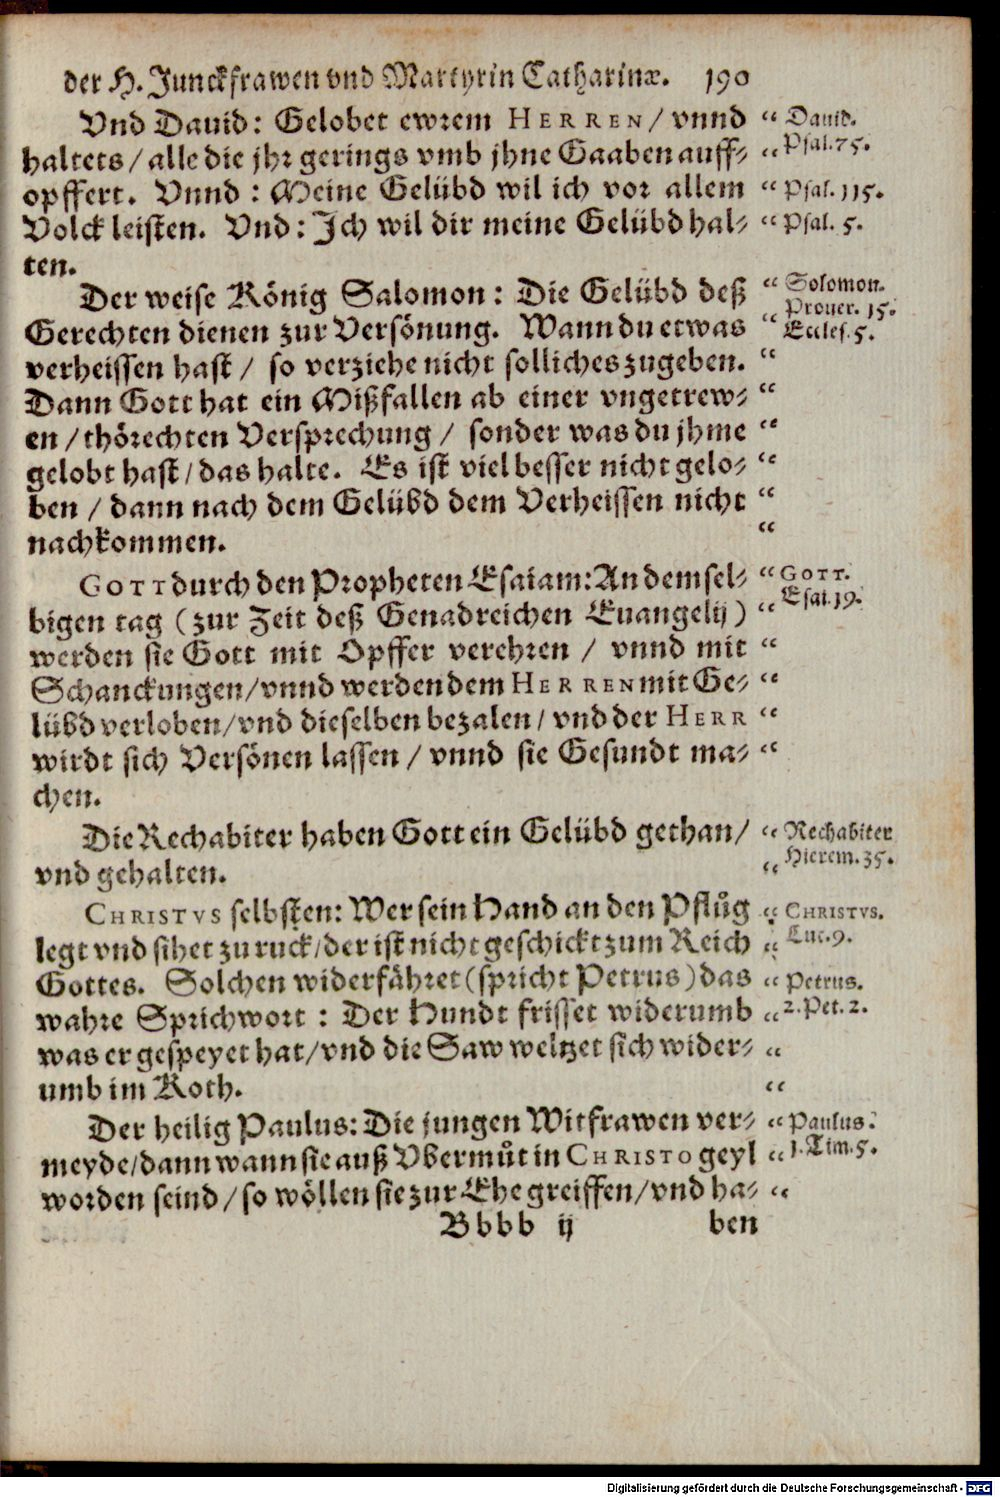 der H. Junckfrawen vnd Martyrin Catharinæ. 190
Vnd Dauid: Gelobet ewrem HERREN/ vnnd
haltets/ alle die jhr gerings vmb jhne Gaaben auff⸗
opffert. Vnnd: Meine Gelübd wil ich vor allem
Volck leisten. Vnd: Ich wil dir meine Gelübd hal⸗
ten.
“ Dauid.
“ Psal. 75.
“ Psal. 115.
“ Psal. 5.
Der weise König Salomon: Die Gelübd deß
Gerechten dienen zur Versönung. Wann du etwas
verheissen hast/ so verziehe nicht solliches zugeben.
Dann Gott hat ein Mißfallen ab einer vngetrew⸗
en/ thörechten Versprechung/ sonder was du jhme
gelobt hast/ das halte. Es ist viel besser nicht gelo⸗
ben/ dann nach dem Gelübd dem Verheissen nicht
nachkommen.
“ Solomon.
Prouer. 15.
“ Eccles. 5.
“
“
“
“
“
“
GOTT durch den Propheten Esaiam: An demsel⸗
bigen tag (zur Zeit deß Genadreichen Euangelij)
werden sie Gott mit Opffer verehren/ vnnd mit
Schanckungen/ vnnd werden dem HERREN mit Ge⸗
lübd verloben/ vnd dieselben bezalen/ vnd der HERR
wirdt sich Versönen lassen/ vnnd sie Gesundt ma⸗
chen.
“ GOTT.
Esai. 19.
“
“
“
“
“
Die Rechabiter haben Gott ein Gelübd gethan/
vnd gehalten.
“ Rechabiter
“ Hierem. 35.
CHRISTVS selbsten: Wer sein Hand an den Pflůg
legt vnd sihet zu ruck/ der ist nicht geschickt zum Reich
Gottes. Solchen widerfähret (spricht Petrus) das
wahre Sprichwort: Der Hundt frisset widerumb
was er gespeyet hat/ vnd die Saw weltzet sich wider⸗
umb im Koth.
“ CHRISTVS.
“ Luc. 9.
“ Petrus.
“ 2. Pet. 2.
“
“
Der heilig Paulus: Die jungen Witfrawen ver⸗
meyde/ dann wann sie auß Vbermůt in CHRISTO geyl
worden seind/ so wöllen sie zur Ehe greiffen/ vnd ha⸗
“ Paulus.
“ 1. Tim. 5.
“
Bbbb ij ben
Digitalisierung gefördert durch die Deutsche Forschungsgemeinschaft - DFG